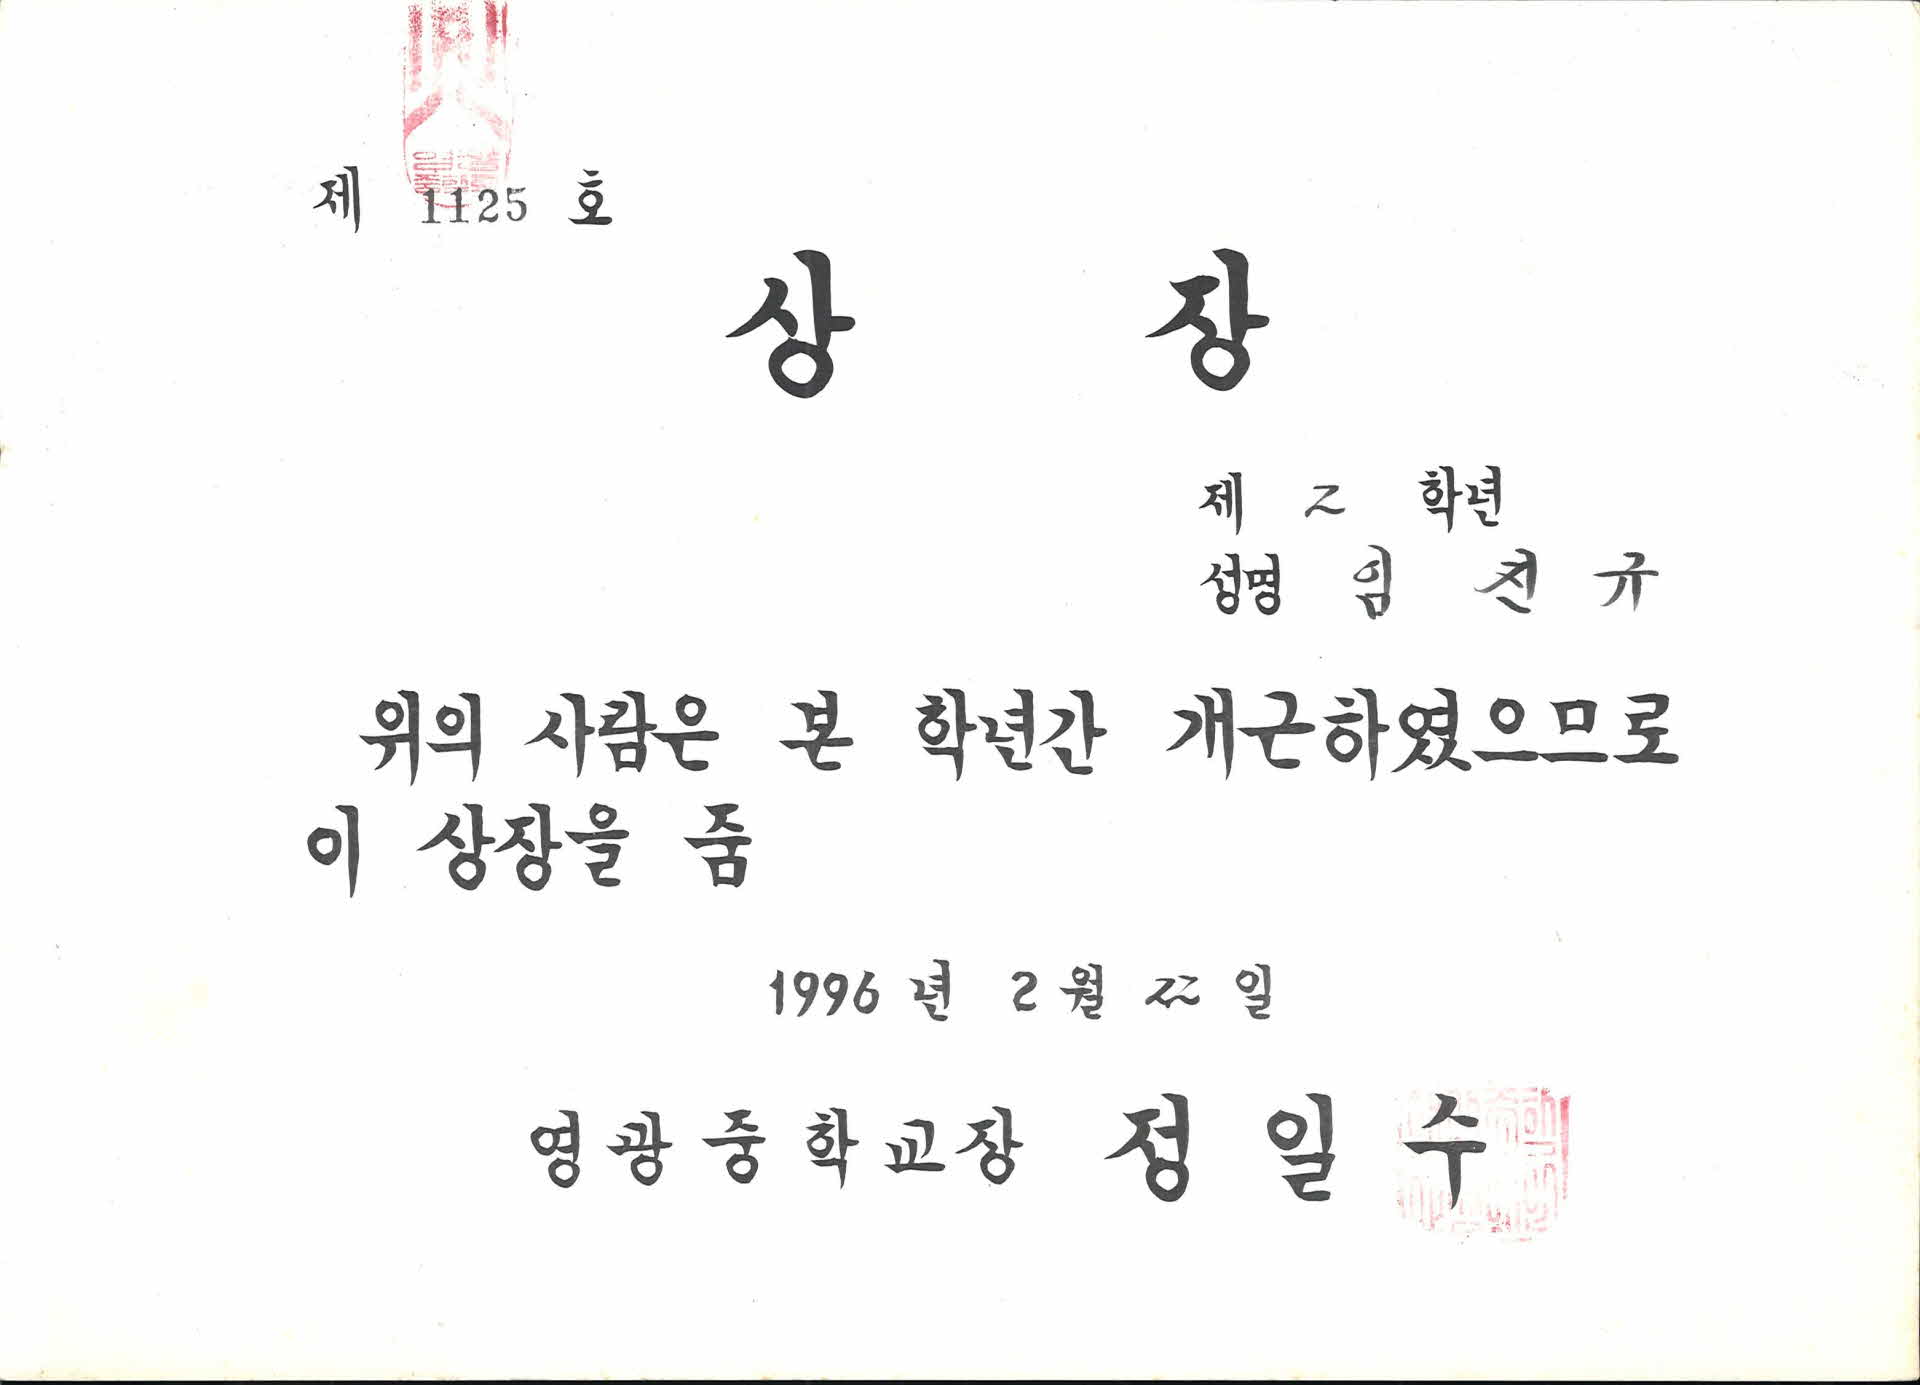 제 1125 호
상 장
제 2 학년
성명 임 진 규
위의 사람은 본 학년간 개근하였으므로
이 상장을 줌
1996 년 2 월 22 일
영광중학교장 정 일 수